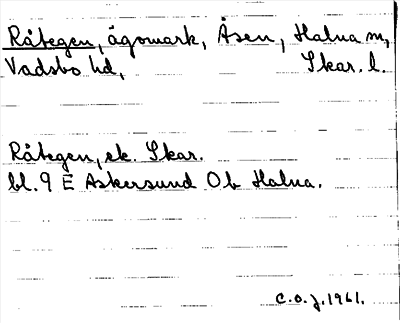 Råtegen, ägomark, Åsen, Halna sn,
Vadsbo hd, Skar. l.
Råtegen, ek. Skar.
bl. 9 E Askersund Ob Halna.
C.O.J. 1961.